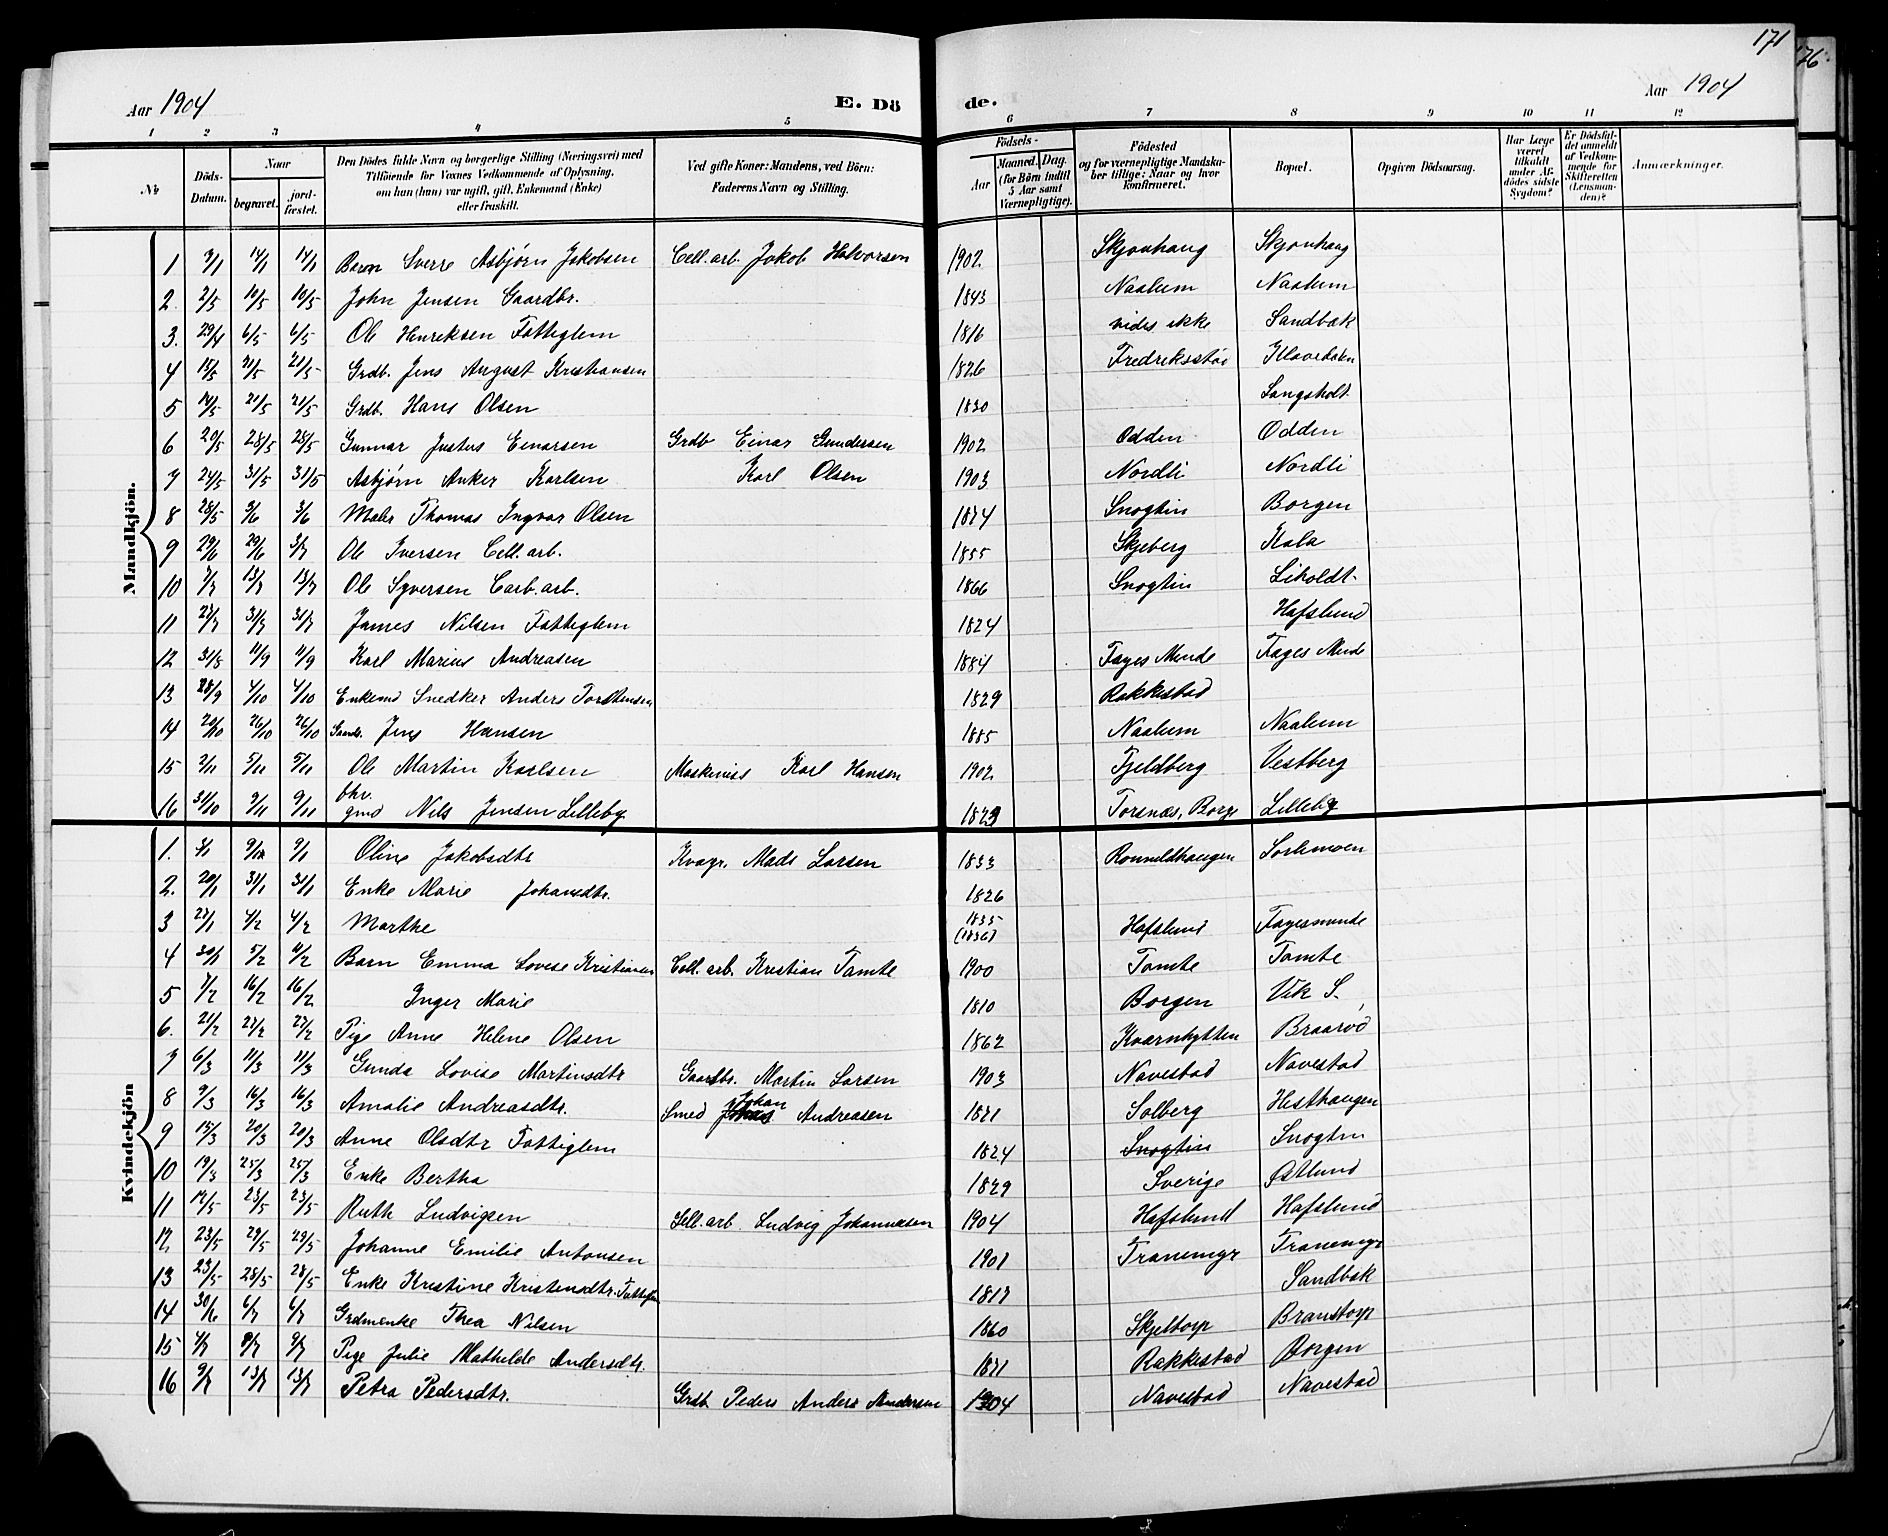 171
176
Aar 1904 E. Dö de. Aar 1904
1 2 3 4 5 6 7 8 9 10 11 12
No Döds-Datum. Naar begravet. jordfæstet. Den Dödes fulde Navn og borgerlige Stilling (Næringsvei) med Tilföiende for Voxnes Vedkommende af Oplysning, om han (hun) var ugift, gift, Enkemand (Enke) eller fraskilt. Ved gifte Koner: Mandens, ved Börn: Faderens Navn og Stilling. Födsels- Aar Maaned. Dag. (for Börn indtil 5 Aar samt Værnepligtige). Födested og for værnepligtige Mandskaber tillige: Naar og hvor konfirmeret. Bopæl. Opgiven Dödsaarsag. Har Læge været tilkaldt under Afdödes sidste Sygdom? Er Dödsfaldet anmeldt af Vedkommende for Skifteretten (Lensmanden)? Anmærkninger.
Mandkjön.
1 9/1 14/1 14/1 Barn Sverre Asbjørn Jakobsen Cell. arb. Jakob Halvorsen 1902 Skjonhaug Skjonhaug
2. 2/5 10/5 10/5 John Jensen Gaardbr. 1843 Naalum Naalum
3. 29/4 6/5 6/5 Ole Henriksen Fattiglem 1816 vides ikke Sandbæk
4 15/5 21/5 21/5 Grdb. Jens August Kristiansen 1826 Fredriksstad
5 14/5 21/5 21/5 Grdb. Hans Olsen 1830 Langsholt
6 20/5 28/5 28/5 Gunnar Justus Einarsen Grdb Einar Gundersen 1902 Odden Odden
7 24/5 31/5 31/5 Asbjørn Anker Karlsen Karl Olsen 1903 Nordli Nordli
8 28/5 3/6 3/6 Maler Thomas Ingvar Olsen 1874 Snogtin Borgen
9 29/6 29/6 3/7 Ole Iversen Cell. arb. 1855 Skjeberg Kala
10 7/7 13/7 13/7 Ole Syversen Carb. arb. 1866 Snogtin Liholdt
11 27/7 31/7 31/7 James Nilsen Fattiglem 1824 Hafslund
12 31/8 4/9 4/9 Karl Marius Andreasen 1884 Fages Minde Fages Minde
13 28/9 4/10 4/10 Enkemd Snedker Anders Torstensen 1829 Rakkestad
14 20/10 26/10 26/10 Jens Hansen 1885 Naalum Naalum
15 2/11 5/11 5/11 Ole Martin Karlsen Maskinist Karl Hansen 1902 Fjeldberg Vestberg
16 31/10 9/11 9/11 fhv. gmd Nils Jensen Lilleby 1823 Torsnæs, Borge Lilleby
Kvindekjön
1. 9/1 9/1 Oline Jakobsdtr Kvægr. Mads Larsen 1833 Ronneldhaugen Sorlimoen
2. 20/1 31/1 31/1 Enke Marie Johansdtr. 1826
3 27/1 4/2 4/2 Marthe 1835 (1836) Hafslund Fagesminde
4 30/1 5/2 4/2 Barn Emma Lovise Kristiansen Cell. arb. Kristian Tamte 1900 Tomte Tomte
5 7/2 16/2 16/2 Inger Marie 1810 Borgen Vik S.
6. 21/2 27/2 27/2 Pige Anne Helene Olsen 1862 Kvarnhytten Braarød
7 6/3 11/3 11/3 Gunda Lovise Martinsdtr Gaardbr. Martin Larsen 1903 Navestad Navestad
8 9/3 16/3 16/3 Amalie Andreasdtr. Smed Johan Andreasen 1871 Solberg Hesthaugen
9 15/3 20/3 20/3 Anne Olsdtr Fattiglem 1824 Snogtin Snogtin
10 19/3 25/3 25/3 Enke Bertha 1829 Sverige Østlund
11 17/5 23/5 23/5 Ruth Ludvigsen Cell. arb. Ludvig Johannesen 1904 Hafslund Hafslund
12. 23/5 29/5 29/5 Johanne Emilie Antonsen 1901 Tranemyr Tranemyr
13 23/5 28/5 28/5 Enke Kristine Kristensdtr. Fattiglem 1817 Sandbæk
14 30/6 6/7 6/7 Grdmenke Thea Nilsen 1860 Skjeltorp Branstorp
15 4/7 8/7 9/7 Pige Julie Mathilde Andersdtr. 1871 Rakkestad Borgen
16 9/7 13/7 13/7 Petra Pedersdtr. Grdb Peders Anders Andersen 1904 Navestad Navestad